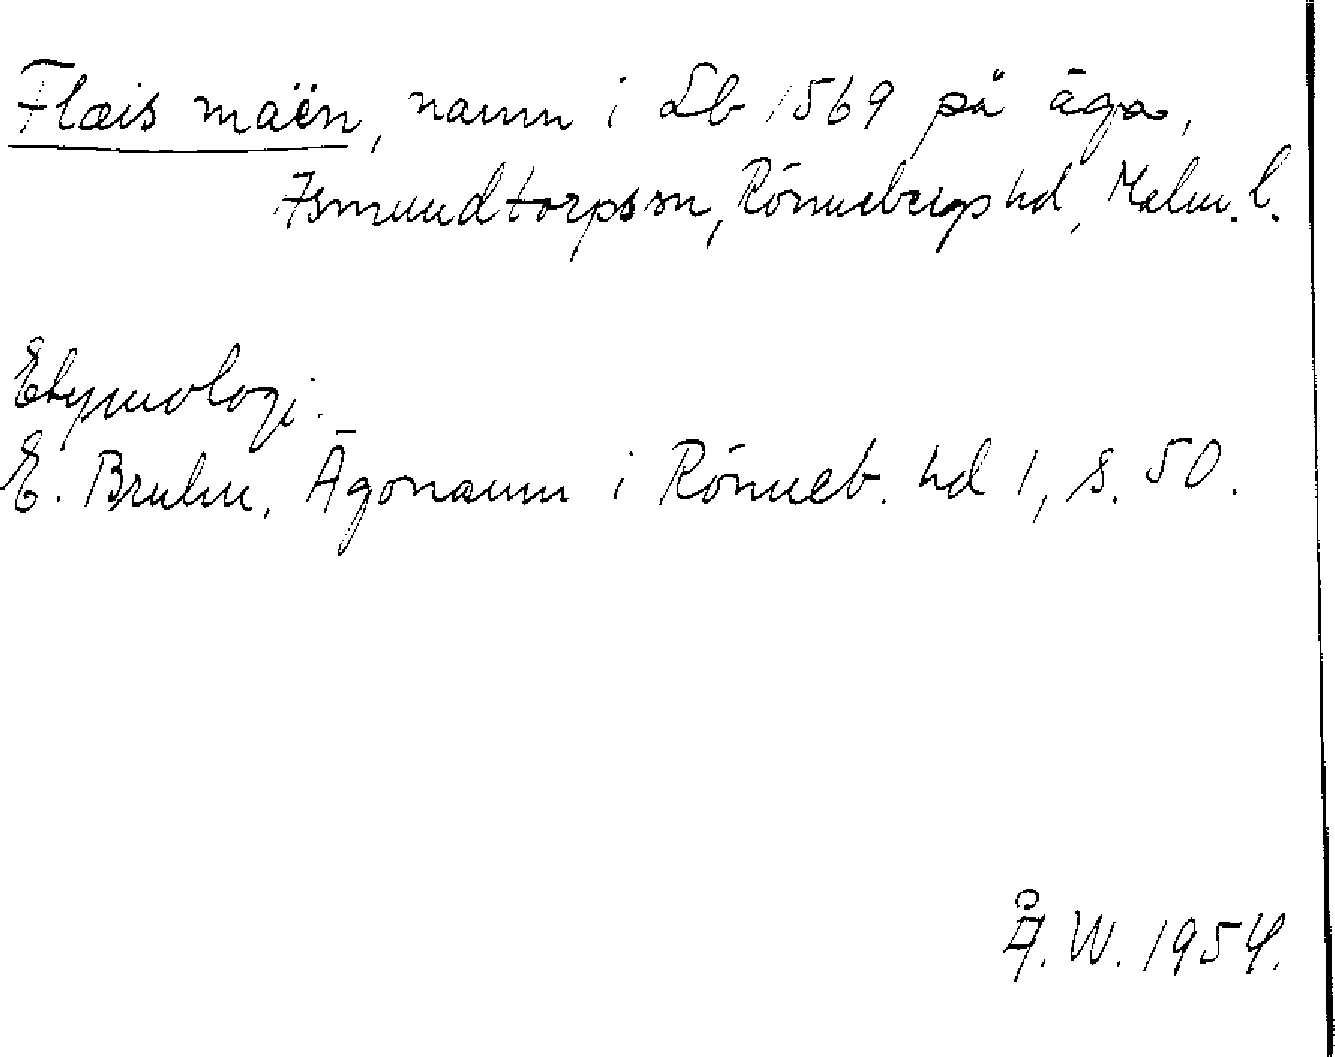 Flæis maën, namn i Lb 1569 på äga,
Asmundtorps sn, Rönnebergs hd, Malm. l.
Etymologi.
E. Bruhn, Ägonamn i Rönneb. hd 1, s. 50.
Å. W. 1954.